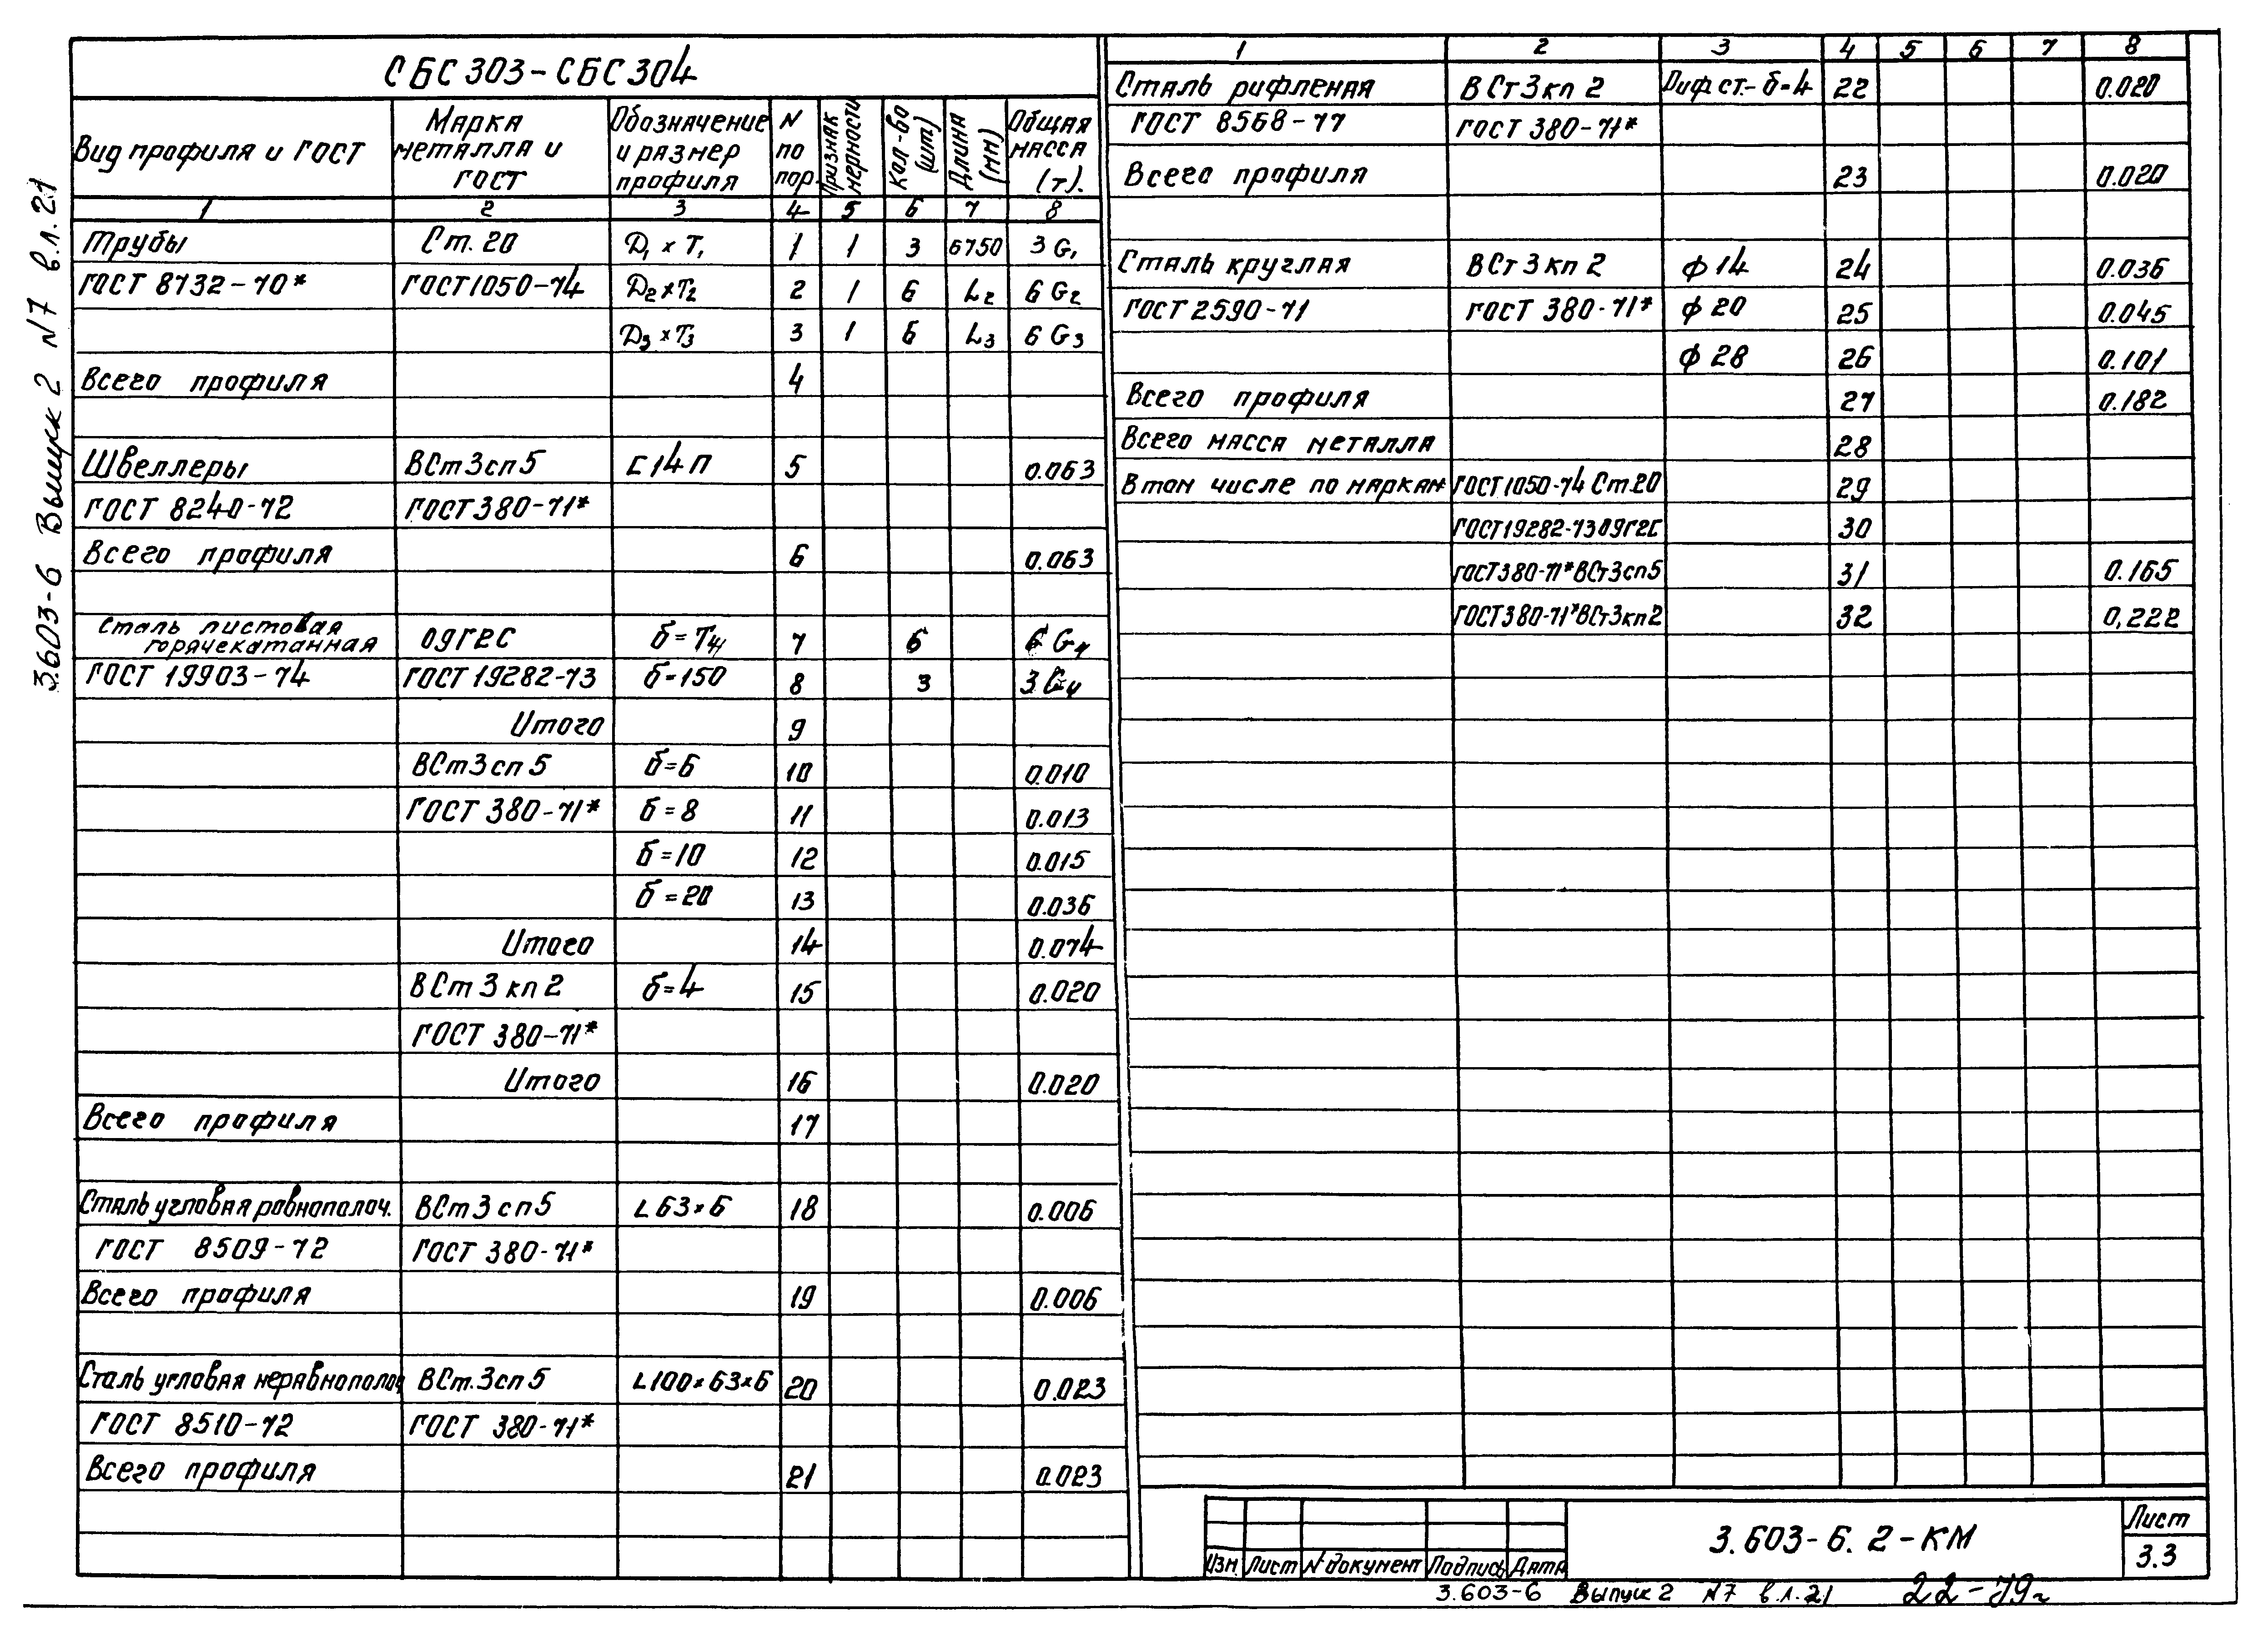 3.603-6 Выпуск 2 N7 в.л.21
СБС 303 - СБС 304
Вид профиля и ГОСТ | Марка металла и ГОСТ | Обозначение и размер профиля | N по пор. | Признак мерности | Кол-во (шт) | Длина (мм) | Общая масса (т).
1 2 3 4 5 6 7 8
Трубы Ст. 20 D₁ x T₁ 1 1 3 6750 3 G₁
ГОСТ 8732-70* ГОСТ 1050-74 D₂ x T₂ 2 1 6 L₂ 6 G₂
D₃ x T₃ 3 1 6 L₃ 6 G₃
Всего профиля 4
Швеллеры ВСт3сп5 [14П 5 0.063
ГОСТ 8240-72 ГОСТ 380-71*
Всего профиля 6 0.063
Сталь листовая
горячекатанная 09Г2С б=Т₄ 7 6 6 G₄
ГОСТ 19903-74 ГОСТ 19282-73 б=150 8 3 3 G₄
Итого 9
ВСт3сп5 б=6 10 0.010
ГОСТ 380-71* б=8 11 0.013
б=10 12 0.015
б=20 13 0.036
Итого 14 0.074
ВСт3кп2 б=4 15 0.020
ГОСТ 380-71*
Итого 16 0.020
Всего профиля 17
Сталь угловая равнополоч. ВСт3сп5 L63×6 18 0.006
ГОСТ 8509-72 ГОСТ 380-71*
Всего профиля 19 0.006
Сталь угловая неравнополоч ВСт.3сп5 L100×63×6 20 0.023
ГОСТ 8510-72 ГОСТ 380-71*
Всего профиля 21 0.023
1 2 3 4 5 6 7 8
Сталь рифленая ВСт3кп2 Риф ст.-б=4 22 0.020
ГОСТ 8568-77 ГОСТ 380-71*
Всего профиля 23 0.020
Сталь круглая ВСт3кп2 ф14 24 0.036
ГОСТ 2590-71 ГОСТ 380-71* ф20 25 0.045
ф28 26 0.101
Всего профиля 27 0.182
Всего масса металла 28
В том числе по маркам ГОСТ 1050-74 Ст.20 29
ГОСТ 19282-73 09Г2С 30
ГОСТ 380-71* ВСт3сп5 31 0.165
ГОСТ 380-71* ВСт3кп2 32 0,222
Изм. Лист N документ Подпись Дата
3.603-6.2-КМ
Лист
3.3
3.603-6 Выпуск 2 N7 в.л.21 22-79г